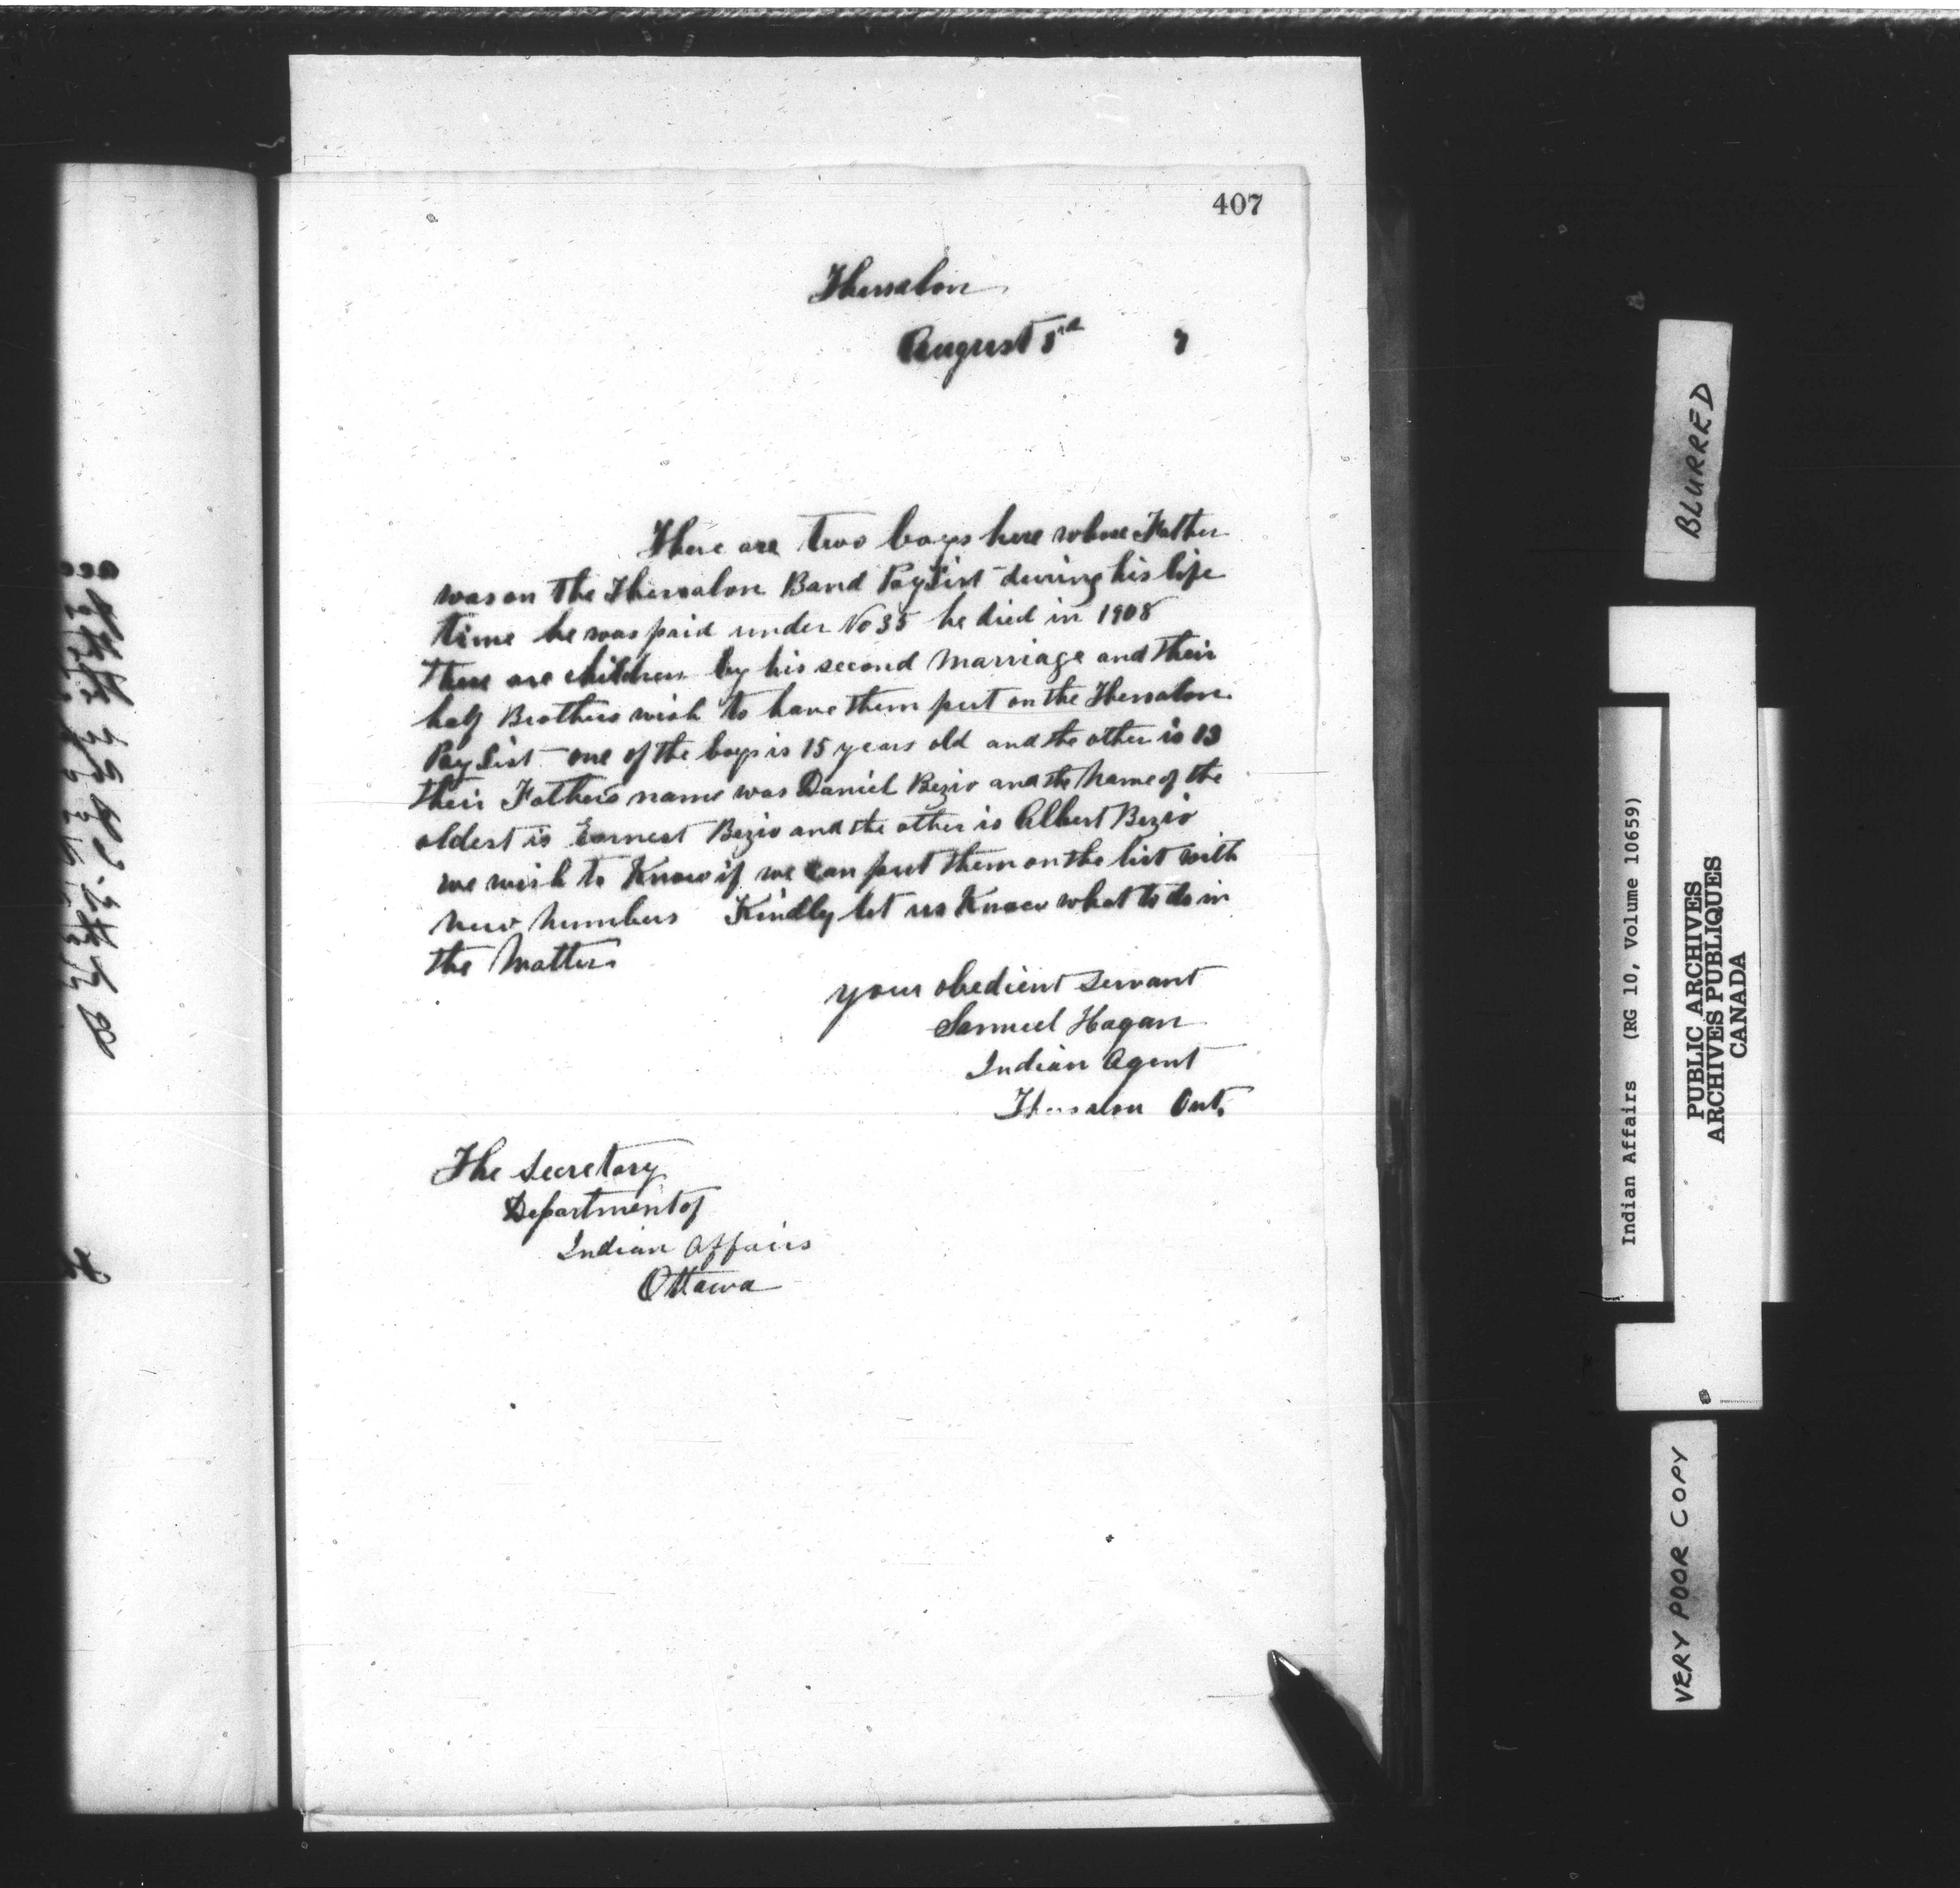 407
Thessalon
August
There are two boys here whose Father
was on the Thessalon Band Pay List during his life
time he was paid under No 35 he died in 1908
There are children by his second marriage and their
half Brothers wish to have them put on the Thessalon
Pay List one of the boys is 15 years old and the other is 13
their Fathers name was Daniel Bezio and the name of the
oldest is Earnest Bezio and the other is Albert Bezio
we wish to Know if we can put them on the list with
new numbers Kindly let us Know what to do in
the Matter
your obedient servant
Samuel Hagan
Indian Agent
Thessalon Ont.
The Secretary
Department of
Indian Affairs
Ottawa
BLURRED
Indian Affairs (RG 10, Volume 10659)
PUBLIC ARCHIVES
ARCHIVES PUBLIQUES
CANADA
VERY POOR COPY